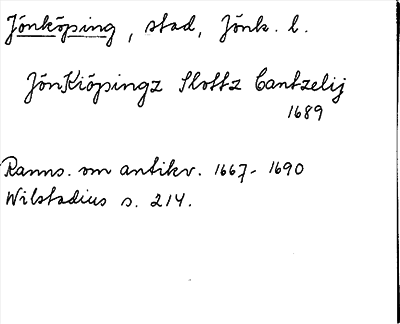 Jönköping, stad, Jönk. l.
JönKiöpingz Slottz Cantzelij
1689
Ranns. om antikv. 1667-1690
Wilstadius s. 214.